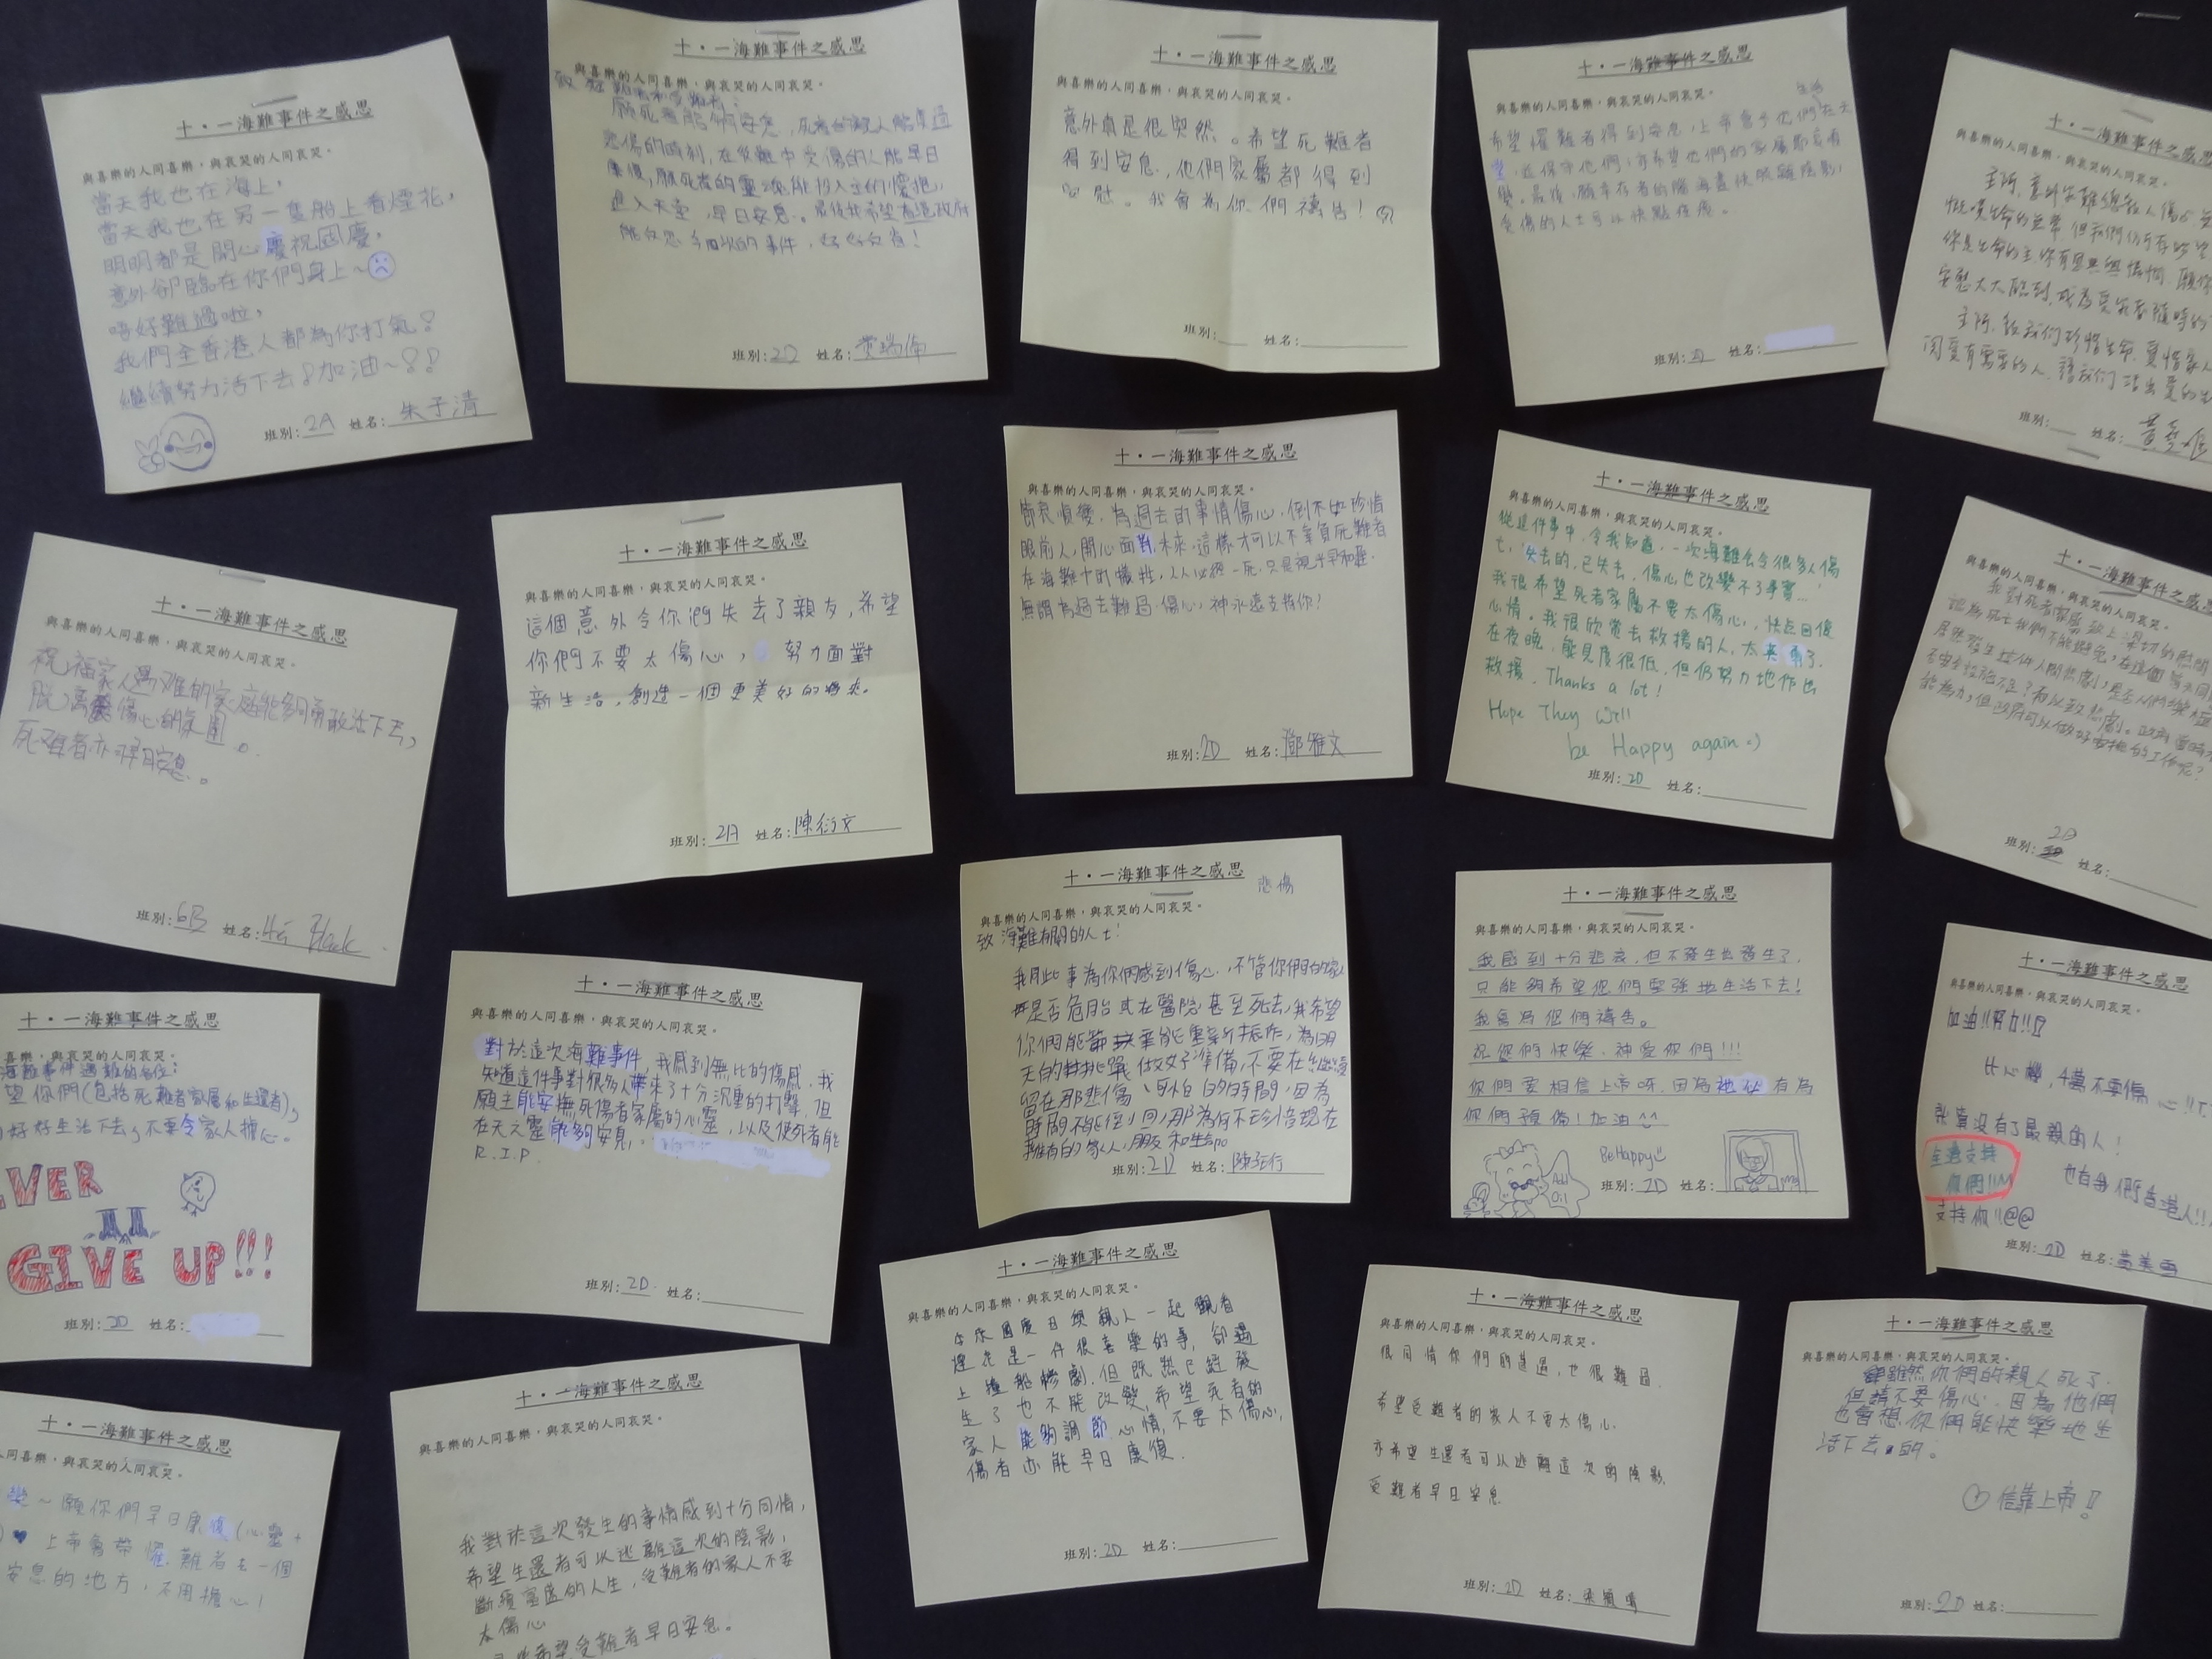 十・一海難事件之感思
與喜樂的人同喜樂，與哀哭的人同哀哭。
當天我也在海上，
當天我也在另一隻船上看煙花，
明明都是開心慶祝國慶，
意外卻臨在你們身上～
唔好難過啦，
我們全香港人都為你打氣！
繼續努力活下去！加油～！！
班別：2A 姓名：朱子清
十・一海難事件之感思
與喜樂的人同喜樂，與哀哭的人同哀哭。
願死者能夠安息，死者的親人能度過
悲傷的時刻，在災難中受傷的人能早日
康復，願死者的靈魂能投入主的懷抱，
進入天堂，早日安息。最後我希望有過政府
能反思今次的事件，好好反省！
班別：2D 姓名：黃瑞倫
十・一海難事件之感思
與喜樂的人同喜樂，與哀哭的人同哀哭。
意外真是很突然。希望死難者
得到安息，他們家屬都得到
心慰。我會為你們禱告！
班別： 姓名：
十・一海難事件之感思
與喜樂的人同喜樂，與哀哭的人同哀哭。
生活
希望罹難者得到安息，上帝會令他們在天
堂，並保守他們；亦希望他們的家屬節哀順
變。最後，願幸存者的腦海盡快脫離陰影，
受傷的人士可以快點痊癒。
班別：2D 姓名：
十・一海難事件之感思
與喜樂的人同喜樂，與哀哭的人同哀哭。
主阿，意外災難總教人傷
慨嘆生命的無常，但我們仍可存盼望
你是生命的主，你有恩典與憐憫，願你
安慰大大臨到，成為受
主阿，教我們珍惜生命，愛惜家人
關愛有需要的人，讓我們活出愛的生
班別： 姓名：
十・一海難事件之感思
與喜樂的人同喜樂，與哀哭的人同哀哭。
祝福家人遇难的家庭能夠勇敢活下去，
脫離傷心的氛圍。
死难者亦得安息。
班別：6B 姓名：Hei Black
十・一海難事件之感思
與喜樂的人同喜樂，與哀哭的人同哀哭。
這個意外令你們失去了親友，希望
你們不要太傷心，努力面對
新生活，創造一個更美好的將來。
班別：2A 姓名：陳衍文
十・一海難事件之感思
與喜樂的人同喜樂，與哀哭的人同哀哭。
節哀順變，為過去的事情傷心，倒不如珍惜
眼前人，開心面對未來，這樣才可以不辜負死難者
在海難中的犧牲，人人必經一死，只是視乎早和遲，
無謂為過去難過、傷心，神永遠支持你？
班別：2D 姓名：鄧雅文
十・一海難事件之感思
與喜樂的人同喜樂，與哀哭的人同哀哭。
從這件事中，令我知道，一次海難會令很多人傷
亡，失去的，已失去，傷心也改變不了事實...
我很希望死者家屬不要太傷心，快点回復
心情。我很欣賞去救援的人，太英勇了，
在夜晚，能見度很低，但仍努力地作出
救援。Thanks a lot！
Hope They Will
be Happy again :)
班別：2D 姓名：
十・一海難事件之感思
與喜樂的人同喜樂，與哀哭的人同哀哭。
我對死者家屬致上深切的慰問
因為死亡我們不能避免，在這個
居然發生這件人間悲劇，是否人們
安全設施不足？有以致悲劇。政府當時
能為力，但政府可以做好
班別：2D 姓名：
十・一海難事件之感思
喜樂，與哀哭的人同哀哭。
海難事件遇難的各位：
望你們（包括死難者家屬和生還者），
好好生活下去，不要令家人擔心。
EVER
GIVE UP!!!
班別：2D 姓名：
十・一海難事件之感思
與喜樂的人同喜樂，與哀哭的人同哀哭。
對於這次海難事件，我感到無比的傷感，我
知道這件事對很多人帶來了十分沉重的打擊，但
願主能安撫死傷者家屬的心靈，以及使死者能
在天之靈能夠安息，
R.I.P.
班別：2D 姓名：
十・一海難事件之感思
悲傷
與喜樂的人同喜樂，與哀哭的人同哀哭。
致海難有關的人士！
我用此事為你們感到傷心，不管你們的家人
是否危殆或在醫院甚至死去，我希望
你們能節哀能重新振作，為明
天的挑戰做好準備，不要在繼續
留在那悲傷、可怕的時間，因為
時間不能倒回，那為何不珍惜現在
擁有的家人、朋友和生命
班別：2D 姓名：
十・一海難事件之感思
與喜樂的人同喜樂，與哀哭的人同哀哭。
我感到十分悲哀，但不發生也發生了，
只能夠希望您們堅強地生活下去！
我會為您們禱告。
祝您們快樂，神愛你們!!!
你們要相信上帝呀，因為祂必有為
你們預備！加油^^
Be Happy
Add Oil
班別：2D 姓名：
十・一海難事件之感思
與喜樂的人同喜樂，與哀哭的人同哀哭。
加油!!努力!!
比心機，千萬不要傷心!!
就算沒有了最親的人！
永遠支持
你們!!!
也有我們香港人!!!
支持你!!@@
班別：2D 姓名：黃美雪
十・一海難事件之感思
人同喜樂，與哀哭的人同哀哭。
變～願你們早日康復（心靈+
♥上帝會帶罹難者去一個
安息的地方，不用擔心！
十・一海難事件之感思
與喜樂的人同喜樂，與哀哭的人同哀哭。
我對於這次發生的事情感到十分同情，
希望生還者可以逃離這次的陰影，
斷續富盛的人生，受難者的家人不要
太傷心
希望受難者早日安息！
十・一海難事件之感思
與喜樂的人同喜樂，與哀哭的人同哀哭。
今次國慶日與親人一起觀看
煙花是一件很喜樂的事，卻遇
上撞船慘劇，但既然已經發
生了也不能改變，希望死者的
家人能夠調節心情，不要太傷心，
傷者亦能早日康復。
班別：2D 姓名：
十・一海難事件之感思
與喜樂的人同喜樂，與哀哭的人同哀哭。
很同情你們的遭遇，也很難過。
希望受難者的家人不要太傷心。
亦希望生還者可以逃離這次的陰影，
受難者早日安息
班別：2D 姓名：梁穎晴
十・一海難事件之感思
與喜樂的人同喜樂，與哀哭的人同哀哭。
雖然你們的親人死了，
但請不要傷心，因為他們
也會想你們能快樂地生
活下去的。
信靠上帝！
班別：2D 姓名：